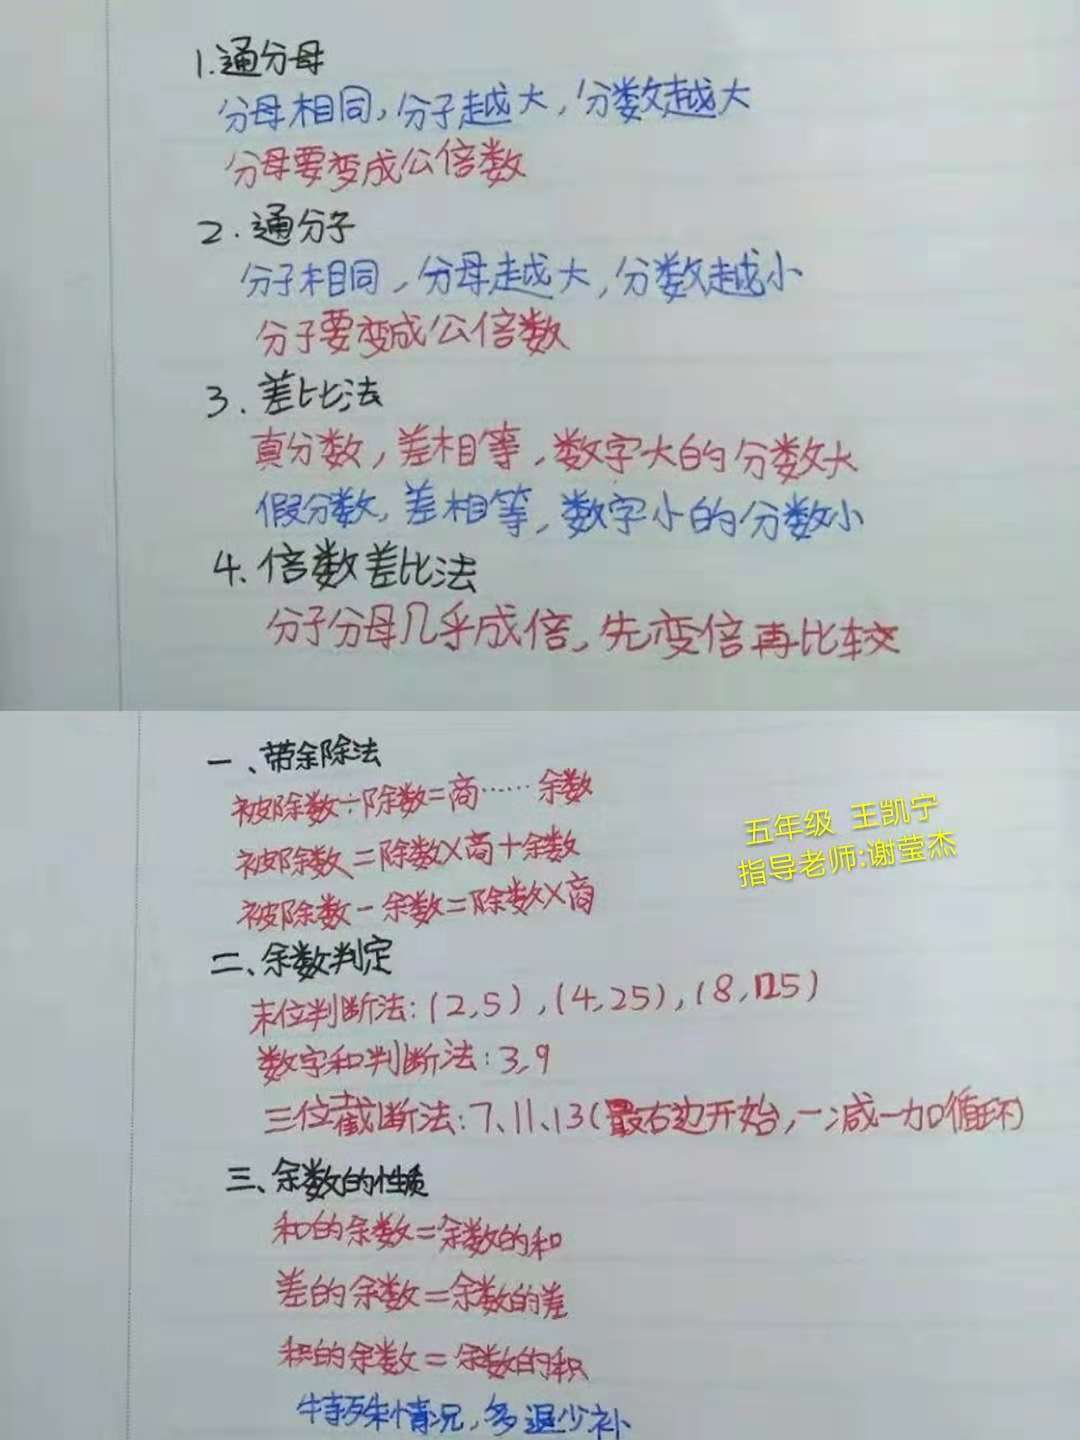 1.通分母
分母相同,分子越大,分数越大
分母要变成公倍数
2.通分子
分子相同,分母越大,分数越小
分子要变成公倍数
3.差比法
真分数,差相等,数字大的分数大
假分数,差相等,数字小的分数小
4.倍数差比法
分子分母几乎成倍,先变倍再比较
一、带余除法
被除数÷除数=商……余数
被除数=除数×商+余数
被除数-余数=除数×商
五年级 王凯宁
指导老师:谢莹杰
二、余数判定
末位判断法:(2,5),(4,25),(8,125)
数字和判断法:3,9
三位截断法:7、11、13(最右边开始,一减一加循环)
三、余数的性质
和的余数=余数的和
差的余数=余数的差
积的余数=余数的积
特殊情况,多退少补